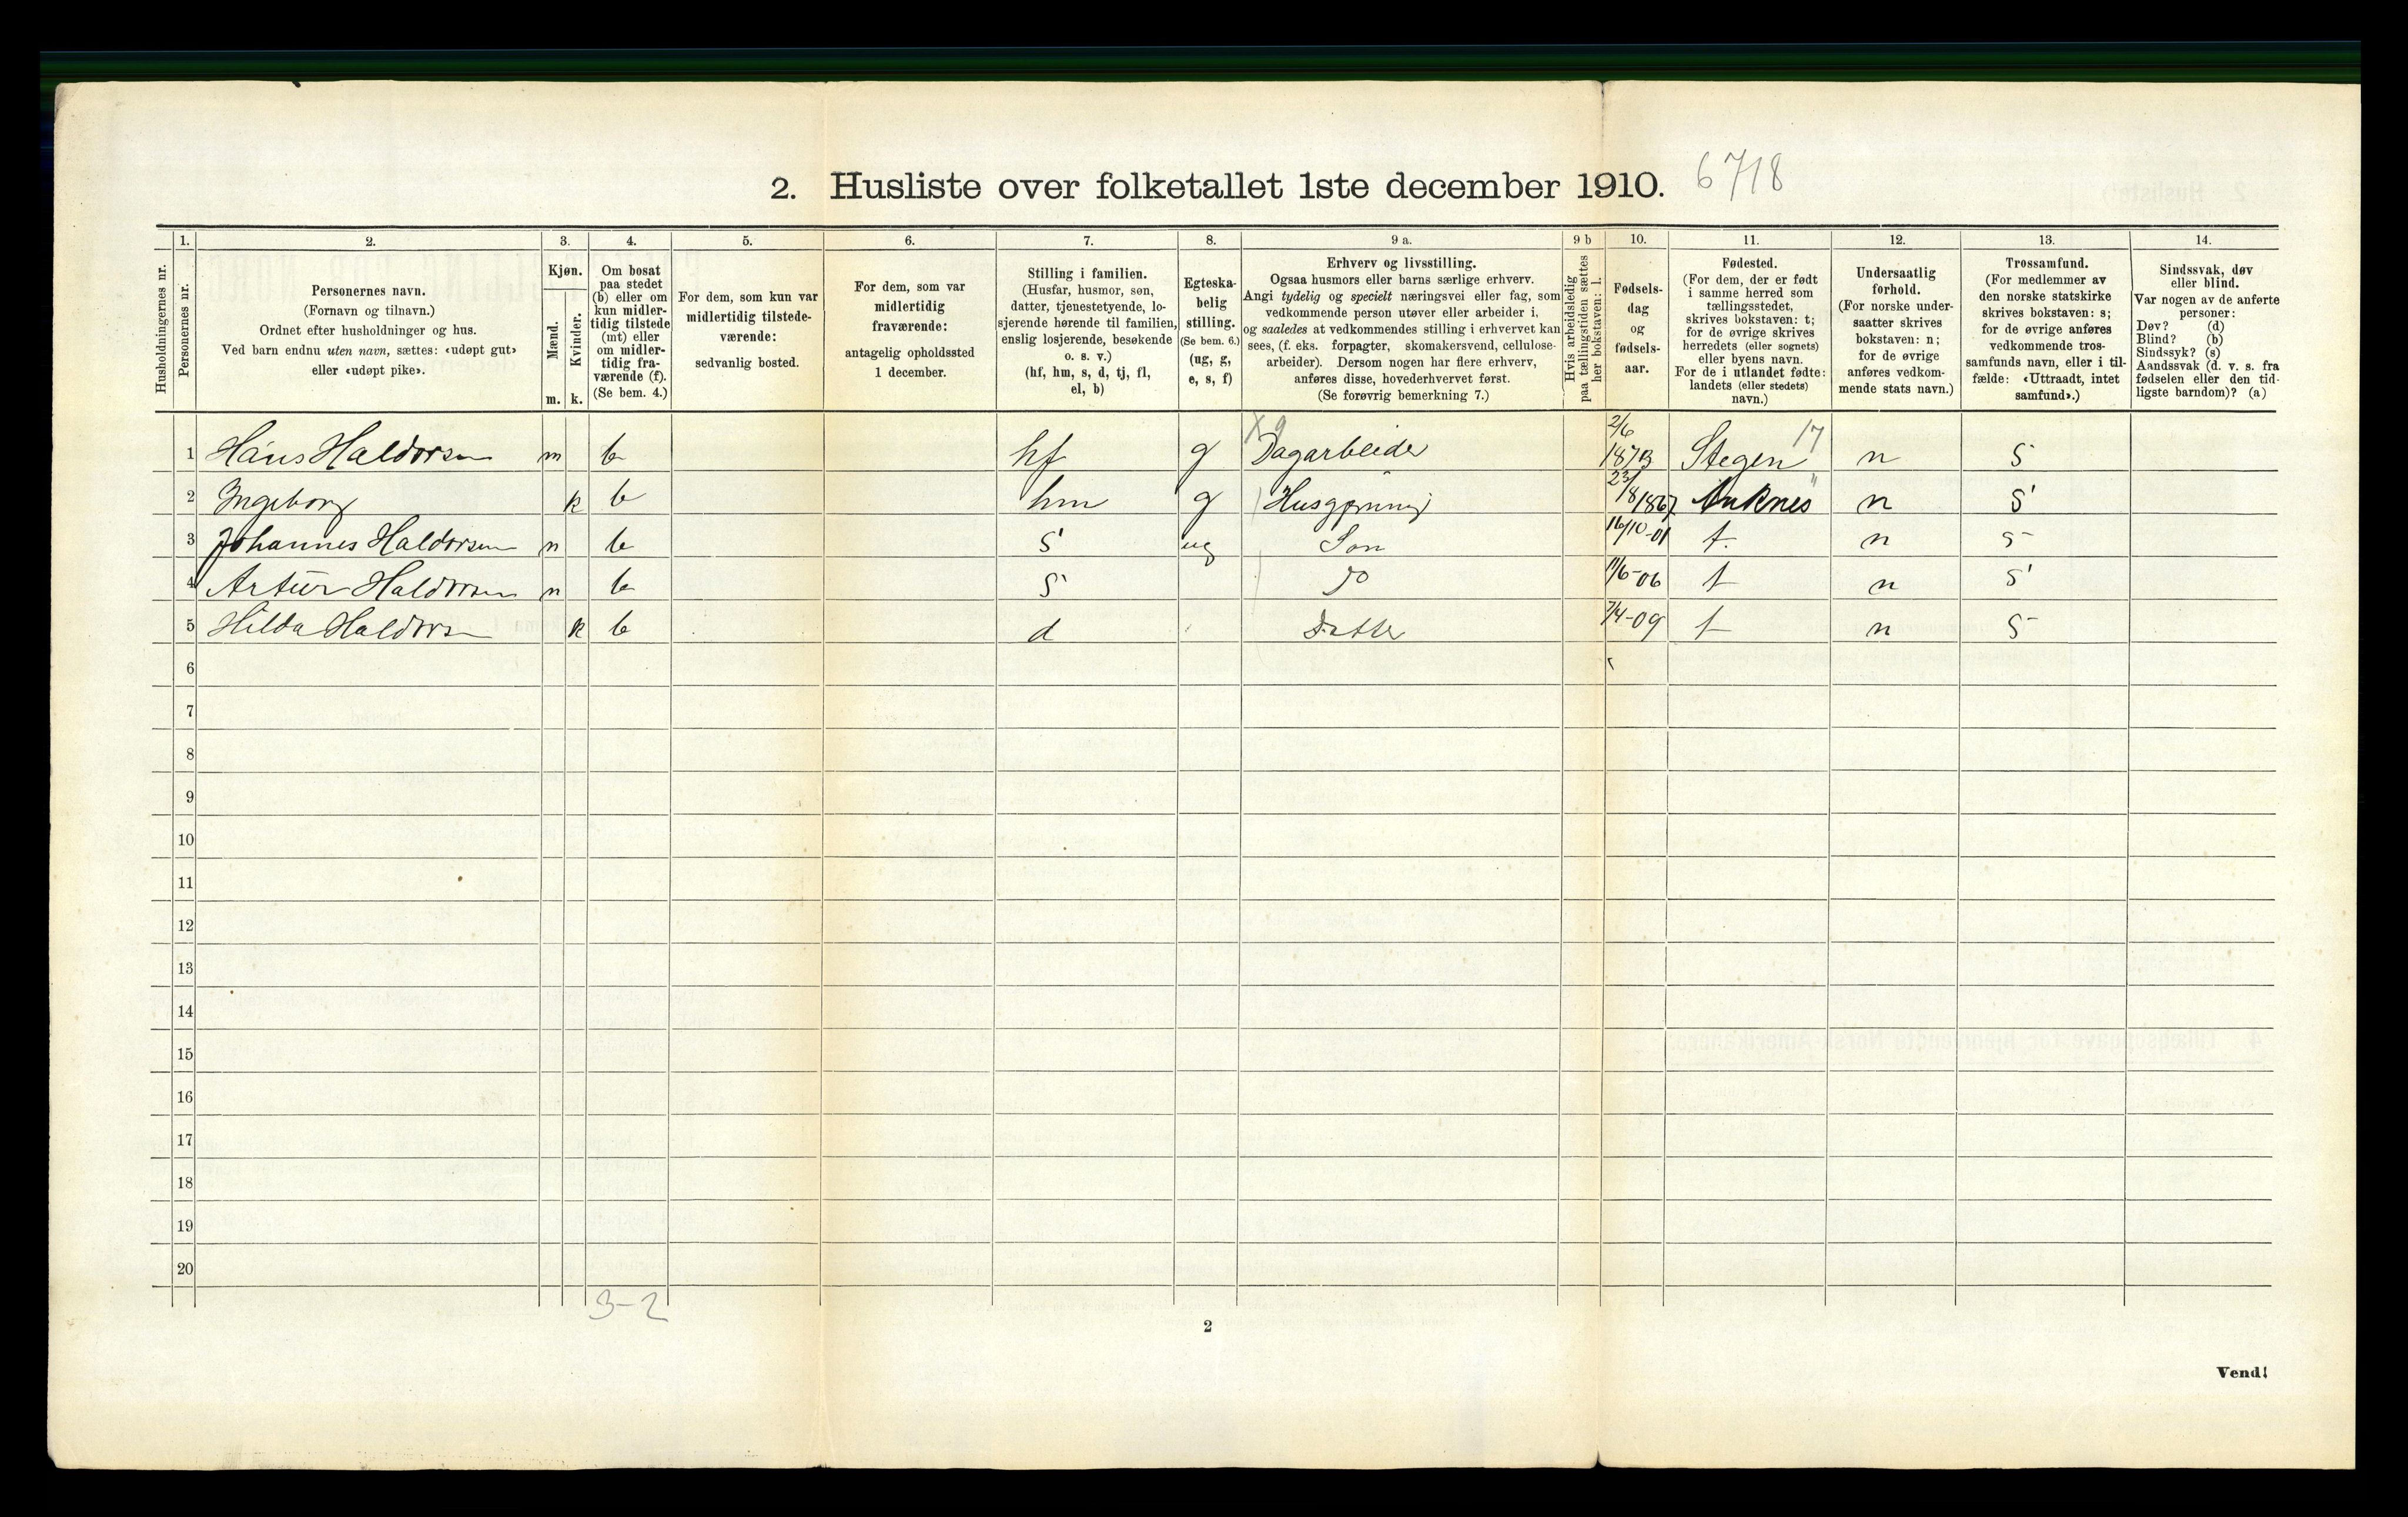 2. Husliste over folketallet 1ste december 1910. 6718
Husholdningernes nr.
1.
Personernes nr.
2.
Personernes navn.
(Fornavn og tilnavn.)
Ordnet efter husholdninger og hus.
Ved barn endnu uten navn, sættes: «udøpt gut»
eller «udøpt pike».
3.
Kjøn.
Mænd.
m.
Kvinder.
k.
4.
Om bosat
paa stedet
(b) eller om
kun midler-
tidig tilstede
(mt) eller
om midler-
tidig fra-
værende (f).
(Se bem. 4.)
5.
For dem, som kun var
midlertidig tilstede-
værende:
sedvanlig bosted.
6.
For dem, som var
midlertidig
fraværende:
antagelig opholdssted
1 december.
7.
Stilling i familien.
(Husfar, husmor, søn,
datter, tjenestetyende, lo-
sjerende hørende til familien,
enslig losjerende, besøkende
o. s. v.)
(hf, hm, s, d, tj, fl,
el, b)
8.
Egteska-
belig
stilling.
(Se bem. 6.)
(ug, g,
e, s, f)
9 a.
Erhverv og livsstilling.
Ogsaa husmors eller barns særlige erhverv.
Angi tydelig og specielt næringsvei eller fag, som
vedkommende person utøver eller arbeider i,
og saaledes at vedkommendes stilling i erhvervet kan
sees, (f. eks. forpagter, skomakersvend, cellulose-
arbeider). Dersom nogen har flere erhverv,
anføres disse, hovederhvervet først.
(Se forøvrig bemerkning 7.)
9 b
Hvis arbeidsledig
paa tællingstiden sættes
her bokstaven: l.
10.
Fødsels-
dag
og
fødsels-
aar.
11.
Fødested.
(For dem, der er født
i samme herred som
tællingsstedet,
skrives bokstaven: t;
for de øvrige skrives
herredets (eller sognets)
eller byens navn.
For de i utlandet fødte:
landets (eller stedets)
navn.)
12.
Undersaatlig
forhold.
(For norske under-
saatter skrives
bokstaven: n;
for de øvrige
anføres vedkom-
mende stats navn.)
13.
Trossamfund.
(For medlemmer av
den norske statskirke
skrives bokstaven: s;
for de øvrige anføres
vedkommende tros-
samfunds navn, eller i til-
fælde: «Uttraadt, intet
samfund».)
14.
Sindssvak, døv
eller blind.
Var nogen av de anførte
personer:
Døv? (d)
Blind? (b)
Sindssyk? (s)
Aandssvak (d. v. s. fra
fødselen eller den tid-
ligste barndom)? (a)
1 Hans Haldorsen m b hf g Dagarbeider 2/6 1873 Stegen 17 n s
2 Ingeborg k b hm g 23/8 1867 Anknes " n s
3 Johannes Haldorsen m b s ug Søn 16/10-01 t. n s
4 Artur Haldorsen m b s Do 11/6-06 t n s
5 Hilda Haldorsen k b d Datter 7/4-09 t n s
6
7
8
9
10
11
12
13
14
15
16
17
18
19
20
3-2
2
Vend!